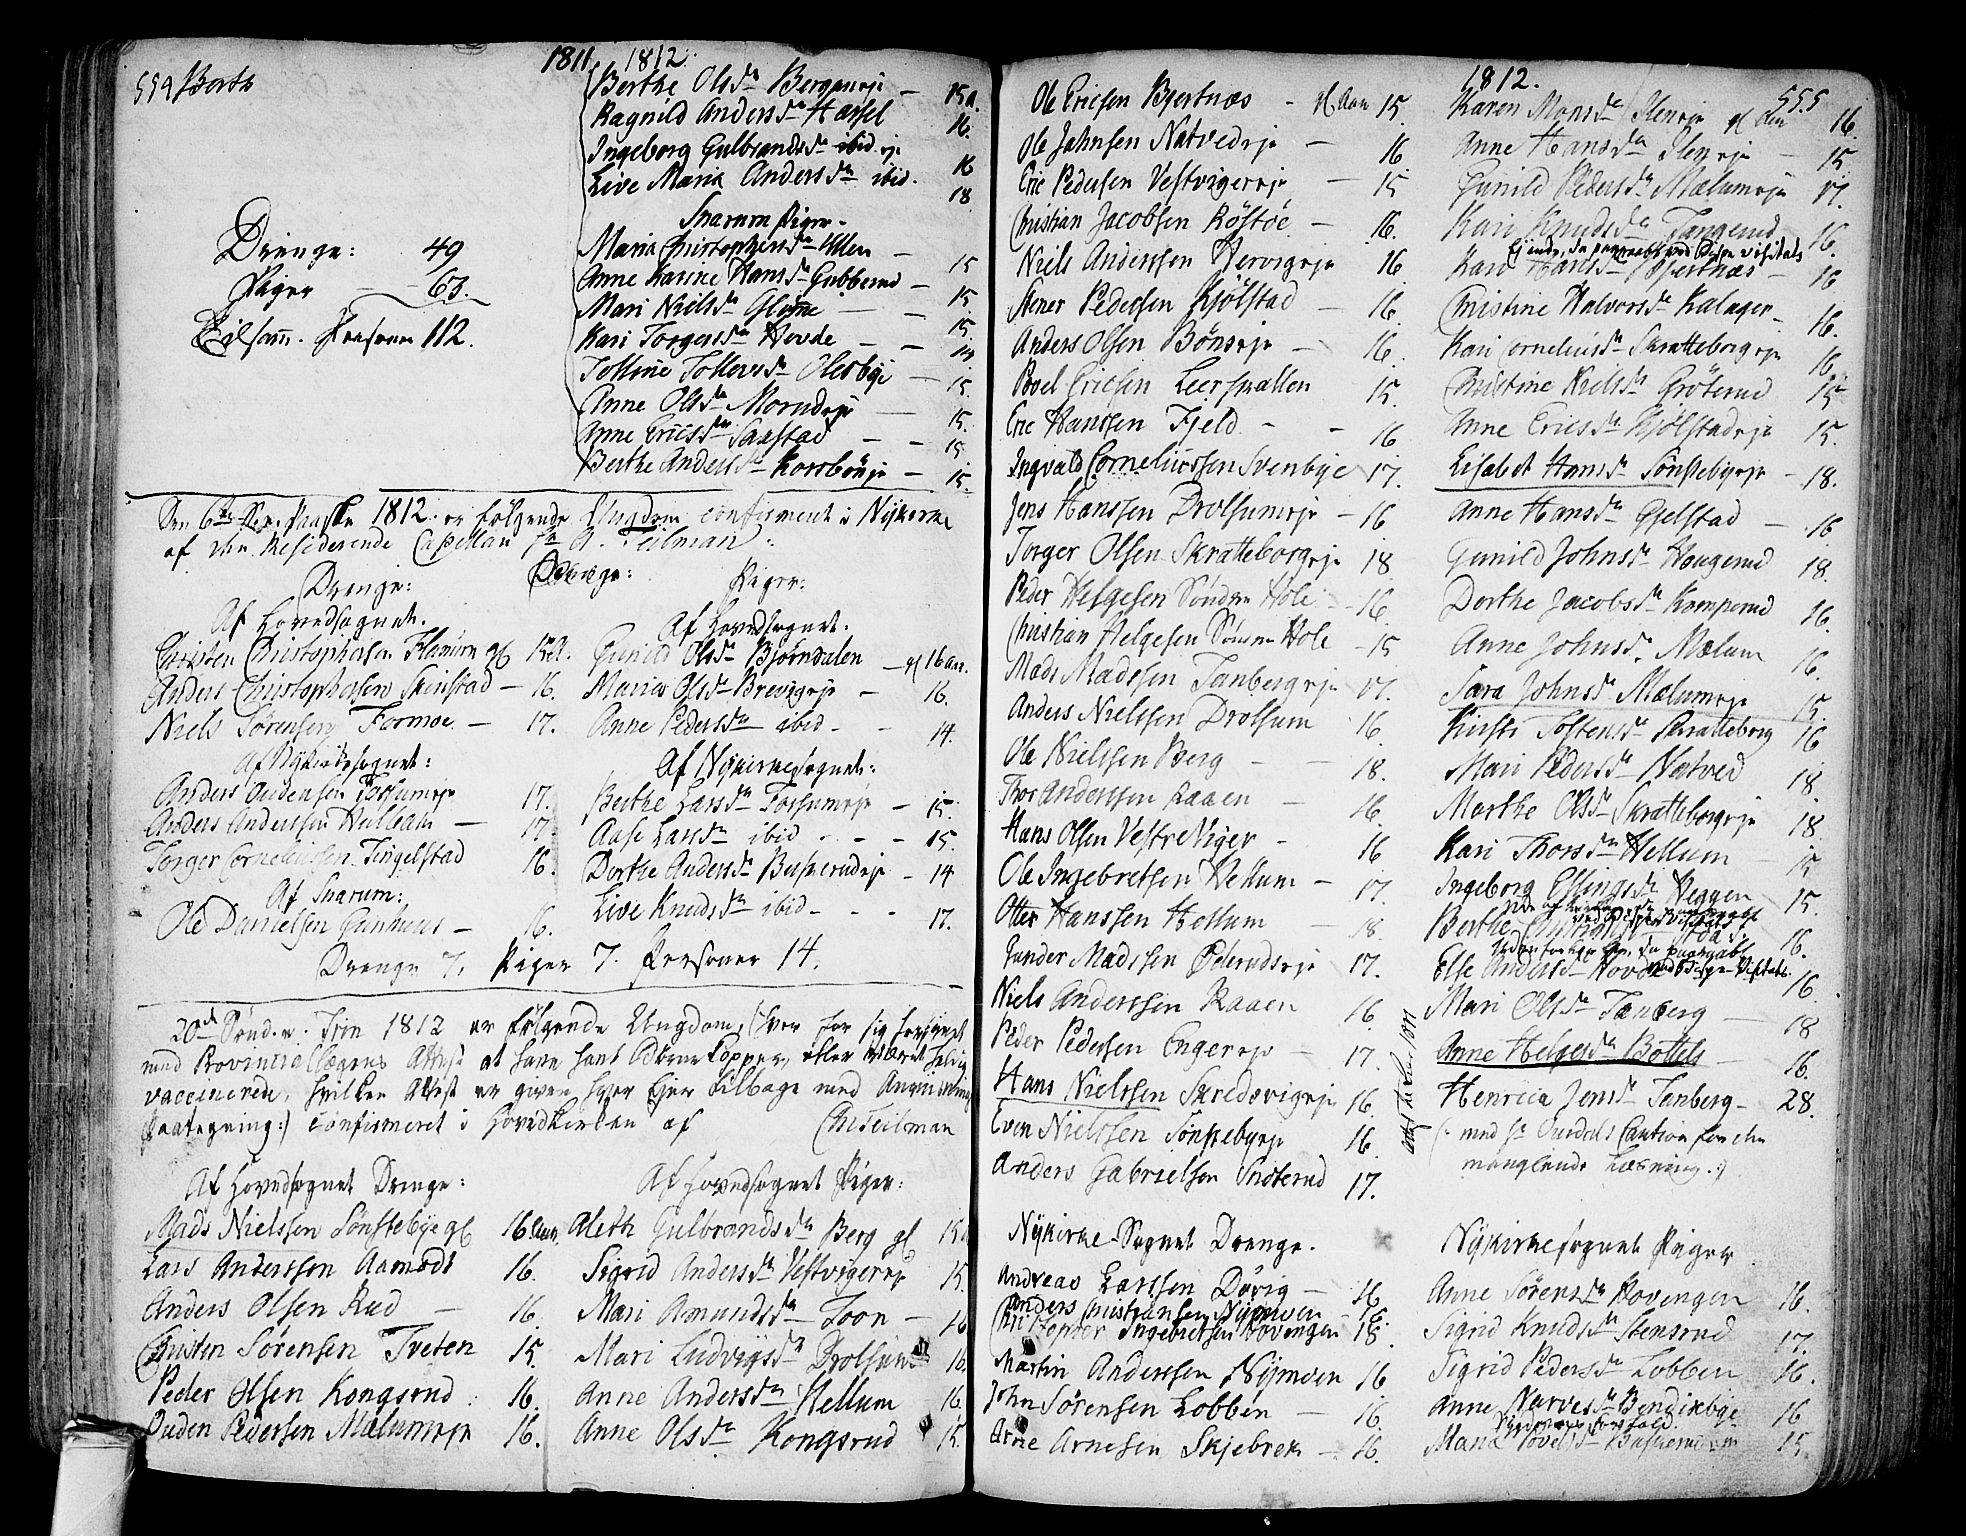 1811 1812.
Berthe Olsdr Bergan eje 15 a.
Ragnild Andersdr Hassel 16.
Ingeborg Gulbrandsdr ibid eje 16
Live Maria Andersdr ibid. 18
Snarum Piger.
Maria Christophersdr Ullen 15
Anne Karine Hansdr Gubberud 15.
Mari Nielsdr Glomne 15.
Kari Torgersdr Hovde
Tolline Tollevsdr Olerbye 15.
Anne Olsdr Morudeje 15.
Anne Ericsdr Saastad 15.
Berthe Andersdr Korsbøneje 15.
Drenge: 49
Piger 63.
Tilsam. Personer 112.
Den 6te Paaske 1812. er følgende Ungdom confirmeret i Nykirke
af den Residerende Capellan Hr A. Teilman
Drenge: Piger:
Af Hovedsognet.
Christen Christophersen Flannum gl
Anders Christophersen Skinstad 16.
Niels Sørensen Formoe 17.
Af Nykirkesognet:
Anders Oudensen Fossumeje 17.
Anders Anderssen 17.
Torger Corneliussen Tingelstad 16.
Af Snarum:
Ole Danielsen Gunhuus 16.
Af Hovedsognet:
Gunild Olsdr Bjørndalen gl 16 aar.
Maria Olsdr Brevigeje 16.
Anne Pedersdr ibid 14.
Af Nykirkesognet:
Berthe Larsdr Fossumeje 15.
Aase Larsdr ibid 15.
Dorthe Andersdr Buskerudeje 14
Live Knudsdr ibid 17.
Drenge 7. Piger 7. Personer 14.
20de Sønd. e. Trin 1812 er følgende Ungdom, (hver for sig forsynet
med Provinciallægens Attest at have havt Børnekopper, eller været
vaccinerede, hvilken Attest er given hver Eier tilbage med Anvisning
Paategning:) confirmeret i Hovedkirken af Chr Teilman
Af Hovedsognet Drenge:
Mads Nielssen Sønstebye gl 16 aar.
Lars Anderssen Aamodt 16.
Anders Olsen Rud 16.
Christen Sørensen Tveten 15.
Peder Olsen Kongsrud 16.
Ouden Pedersen Mælumeje 16.
Af Hovedsognet Piger:
Aleth Gulbrandsdr Berg gl 15
Sigrid Andersdr Vestvigereje 15.
Mari Amundsdr Foon 16
Mari Ludvigsdr Drolsum 16.
Anne Andersdr Hellum 16.
Anne Olsdr Kongsrud 15.
1812. 555
Ole Ericsen Bjertnæs gl. Aar 15.
Ole Jahnsen Natvedeje 16
Eric Pedersen Vestvigereje 15
Christian Jacobsen Røstøe 16.
Niels Anderssen Hervigeje 16
Stener Pedersen Kjølstad 16.
Anders Olsen Bønseje 16.
Povel Ericsen Leerskallen 15.
Eric Hanssen Fjeld 16
Ingvald Corneliussen Svenbye 17.
Jens Hanssen Drolsumeje 16
Torger Olsen Skratteborgeje 18
Peder Helgesen Søndre Hole 16.
Christian Helgesen Søndre Hole 15
Mads Madssen Tanbergeje 17.
Anders Nielssen Drolsum 16.
Ole Nielssen Berg 18.
Thor Anderssen Raaen 16.
Hans Olsen Vestre Viger 16
Ole Ingebretsen Hellum 17.
Otter Hanssen Hellum 18.
Gunder Madssen Øderudseje 17.
Niels Anderssen Raaen 16.
Peder Pedersen Engereje 17.
Hans Nielssen Skredsvigeje 16.
Even Nielssen Sønstebyeje 16.
Anders Gabrielsen Snøterud 17.
Nykirke-Sognet Drenge.
Andreas Larssen Døvig 16.
Anders Christiansen Nymoen 16.
Christopher Ingebretsen Hovengen 18.
Martin Anderssen Nymoen 16
John Sørensen Lobben 16.
Arne Arnesen Skjebrek 16.
Karen Monsdr Steneje gl. Aar 16.
Anne Hansdr Steneje 15.
Gunild Pedersdr Mælumeje 17.
Kari Knudsdr Tangerud 16.
Kari Hansdr Bjertnæs 16
Christine Halvorsdr Kalager 16.
Kari Corneliusdr Skratteborgeje 16.
Christine Nielsdr Grøterud 15
Anne Ericsdr Kjølstadeje 15.
Lisabet Hansdr Sønstebyeje 18.
Anne Hansdr Gjelstad 16
Gunild Johnsdr Hougerud 18.
Dorthe Jacobsdr Komperud 16.
Anne Johnsdr. Mælum 16.
Sara Johnsdr Mælumeje 15.
Kirsti Tostensdr Skratteborg 16
Mari Pedersdr Natved 18
Marthe Olsdr Skratteborgeje 18.
Kari Thorsdr Hellum 15
Ingeborg Ellingsdr Heggen 15.
Berthe 16.
Else Andersdr Hovde 16
Mari Olsdr Tanberg 18
Anne Helgesdr Bottels 16.
Henrica Jensdr Tanberg 28.
(: med Hr Caution for den
manglende Læsning.:)
Nykirkesognet Piger
Anne Sørensdr Hovengen 16.
Sigrid Knudsdr Stensrud 17.
Sigrid Pedersdr Lobben 16.
Anne Narvesdr Bendixbye 16
Maria Povelsdr 15.